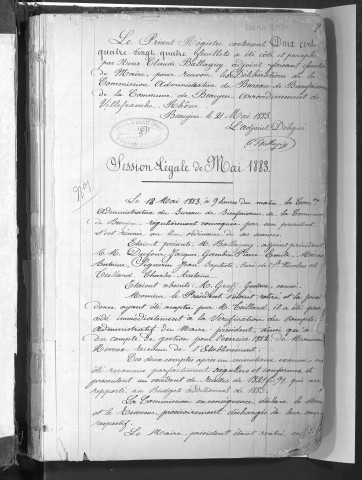 Le Présent Registre contenant Deux cent
quatre vingt quatre feuillets a été coté et paraphé
par Nous Claude Ballaguy adjoint faisant fonction
de Maire, pour recevoir les Délibérations de la
Commission Administrative du Bureau de Bienfaisance
de la Commune de Beaujeu arrondissement de
Villefranche, Rhône.
Beaujeu, le 21 Mai 1883.
L'adjoint Délégué
Session Légale de Mai 1883.
Nº 1
Le 18 Mai 1883, à 9 heures du matin la Comm.on
Administrative du Bureau de Bienfaisance de la Commune
de Beaujeu, régulièrement convoquée par son président
s'est réunie au lieu ordinaire de ses séances.
Étaient présents M. Ballaguy, adjoint président
M.M. Jacques Pierre Émile,
Antoine, Jean Baptiste, curé de St Nicolas et
Charles Antoine.
Étaient absents M. Gustave,
Monsieur le Président s'étant retiré et la prési
dence ayant été remplie par M. il a été pro
cédé immédiatement à la Vérification du Compte
Administratif du Maire président, ainsi qu'à
du Compte de gestion pour l'exercice 1882 de Monsieur
receveur de l'Établissement.
Ces deux comptes après un minutieux examen, ont
été reconnus parfaitement réguliers et conformes et
présentent un excédent de Recettes de
rapporté au Budget additionnel de 1883.
La Commission en conséquence, déclare le Maire
et le Receveur, provisoirement déchargés de leur
respectif.
Le Maire, président étant rentré en